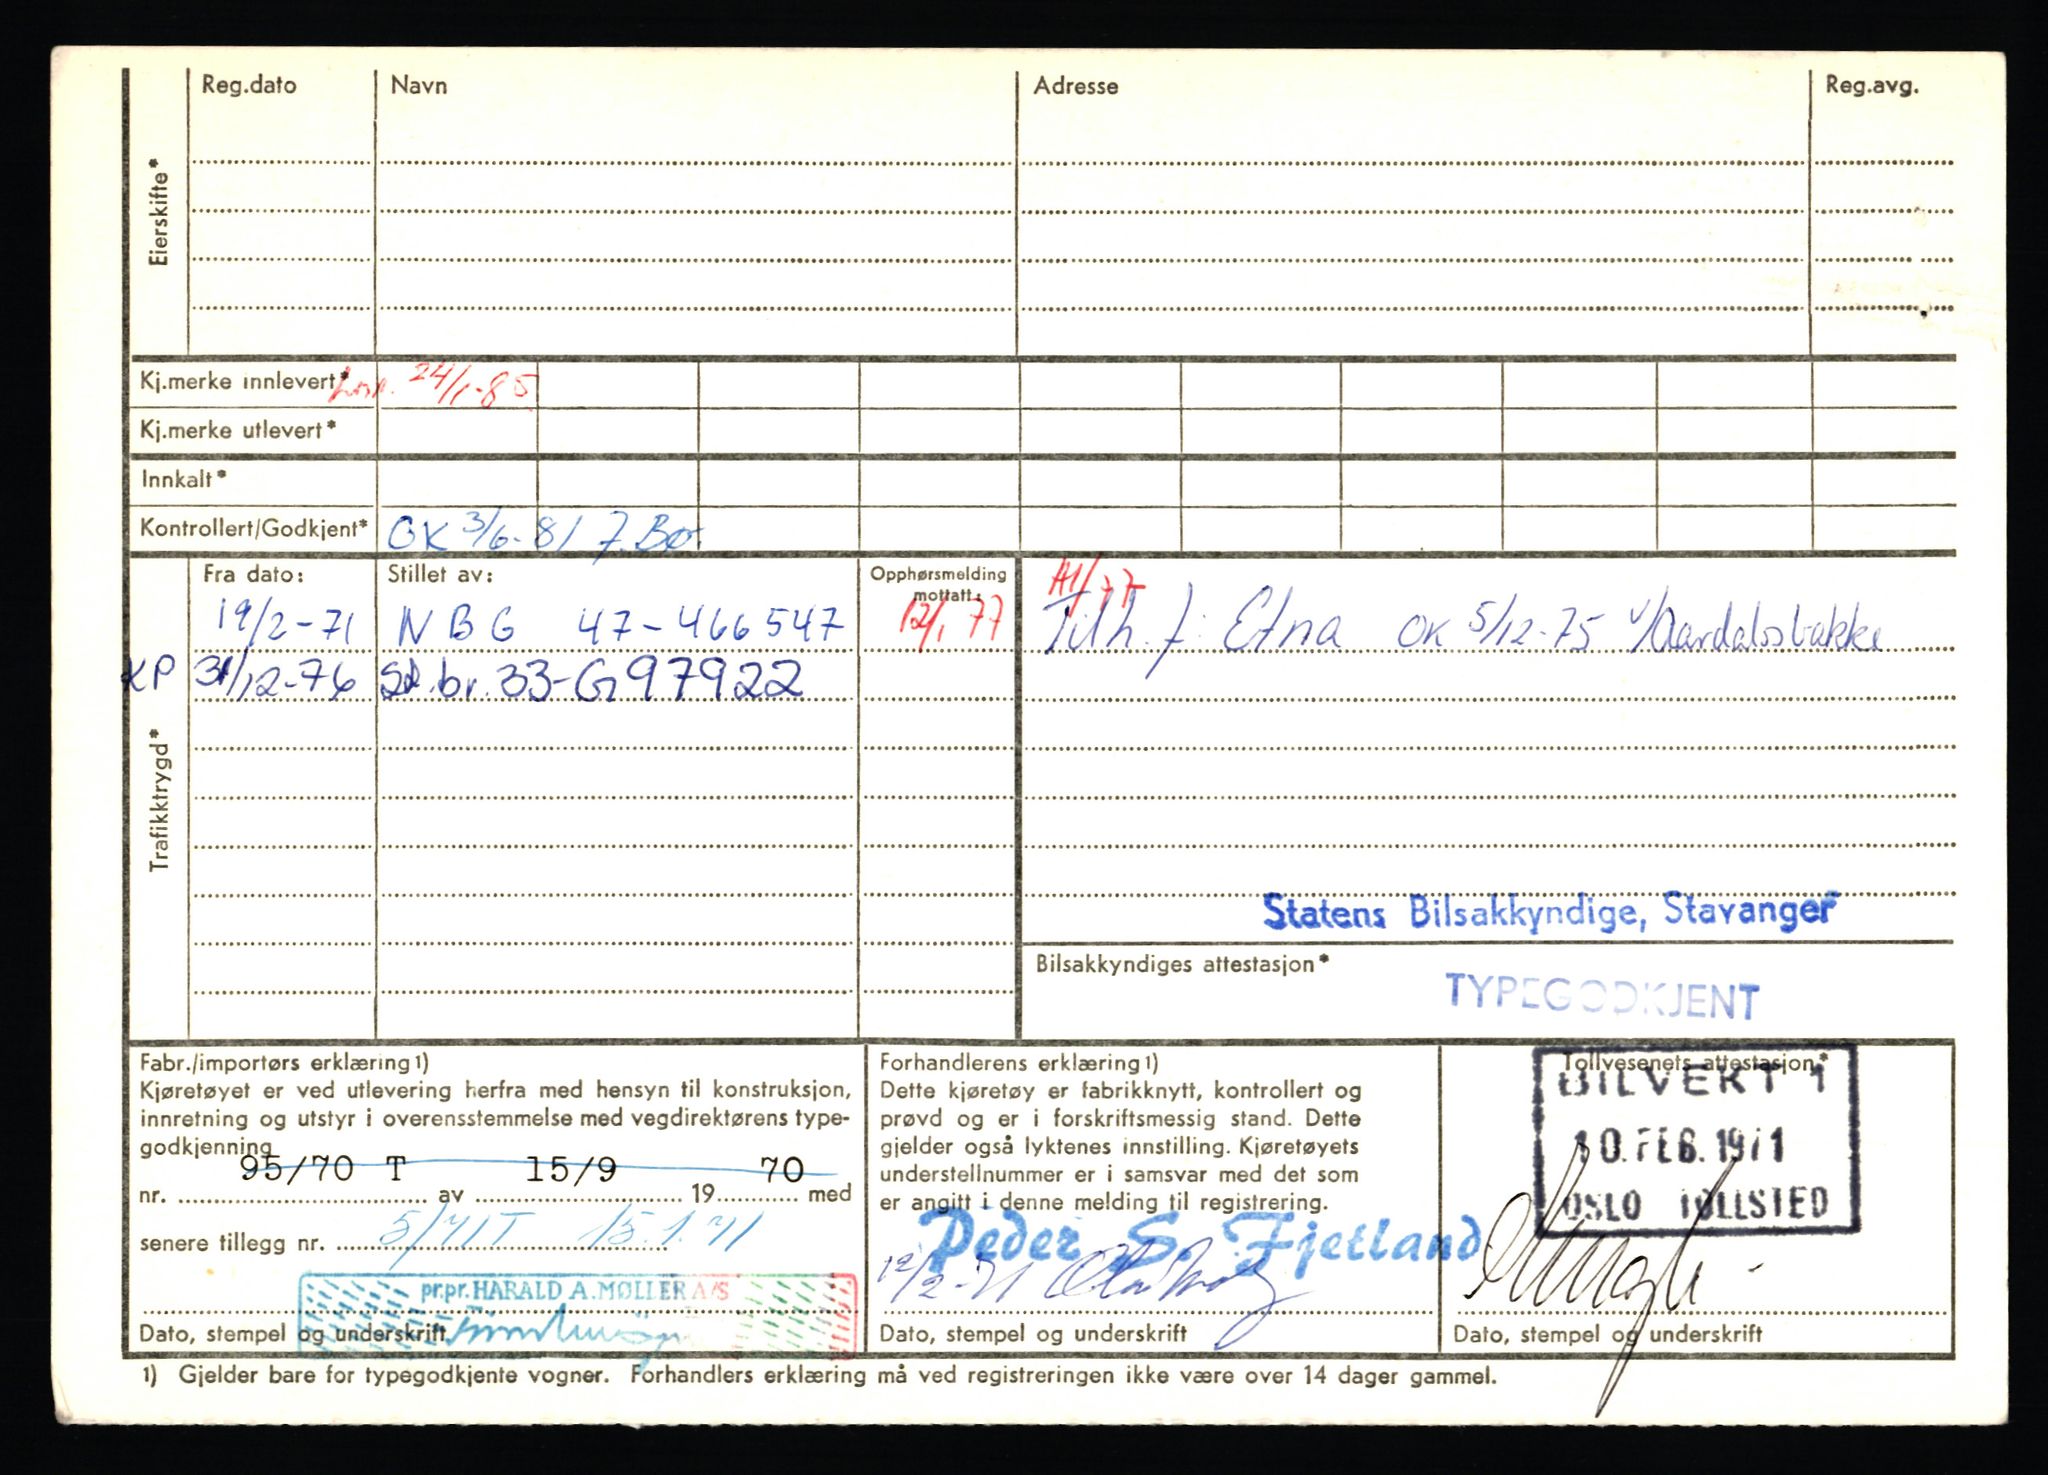 Reg.dato Navn Adresse Reg.avg.
Eierskifte*
Kj.merke innlevert* 24/1-85
Kj.merke utlevert*
Innkalt*
Kontrollert/Godkjent* OK 3/6-81 F.Bø.
Trafikktrygd*
Fra dato: Stillet av: Opphørsmelding mottatt:
19/2-71 NBG 47-466547 12/1 77
KP 31/12-76 br. 33-G97922
Tilh. f: Etna OK 5/12-75 v/Aardalsbakke
Statens Bilsakkyndige, Stavanger
Bilsakkyndiges attestasjon*
TYPEGODKJENT
Fabr./importørs erklæring 1)
Kjøretøyet er ved utlevering herfra med hensyn til konstruksjon,
innretning og utstyr i overensstemmelse med vegdirektørens type-
godkjenning
nr. 95/70 T av 15/9 19 70 med
senere tillegg nr. 5/71T 15.1.71
pr.pr. HARALD A. MØLLER A/S
Dato, stempel og underskrift
Forhandlerens erklæring 1)
Dette kjøretøy er fabrikknytt, kontrollert og
prøvd og er i forskriftsmessig stand. Dette
gjelder også lyktenes innstilling. Kjøretøyets
understellnummer er i samsvar med det som
er angitt i denne melding til registrering.
Peder S. Fjetland
12/2-71
Dato, stempel og underskrift
Tollvesenets attestasjon*
BILVERT 1
10. FEB. 1971
OSLO TOLLSTED
Dato, stempel og underskrift
1) Gjelder bare for typegodkjente vogner. Forhandlers erklæring må ved registreringen ikke være over 14 dager gammel.